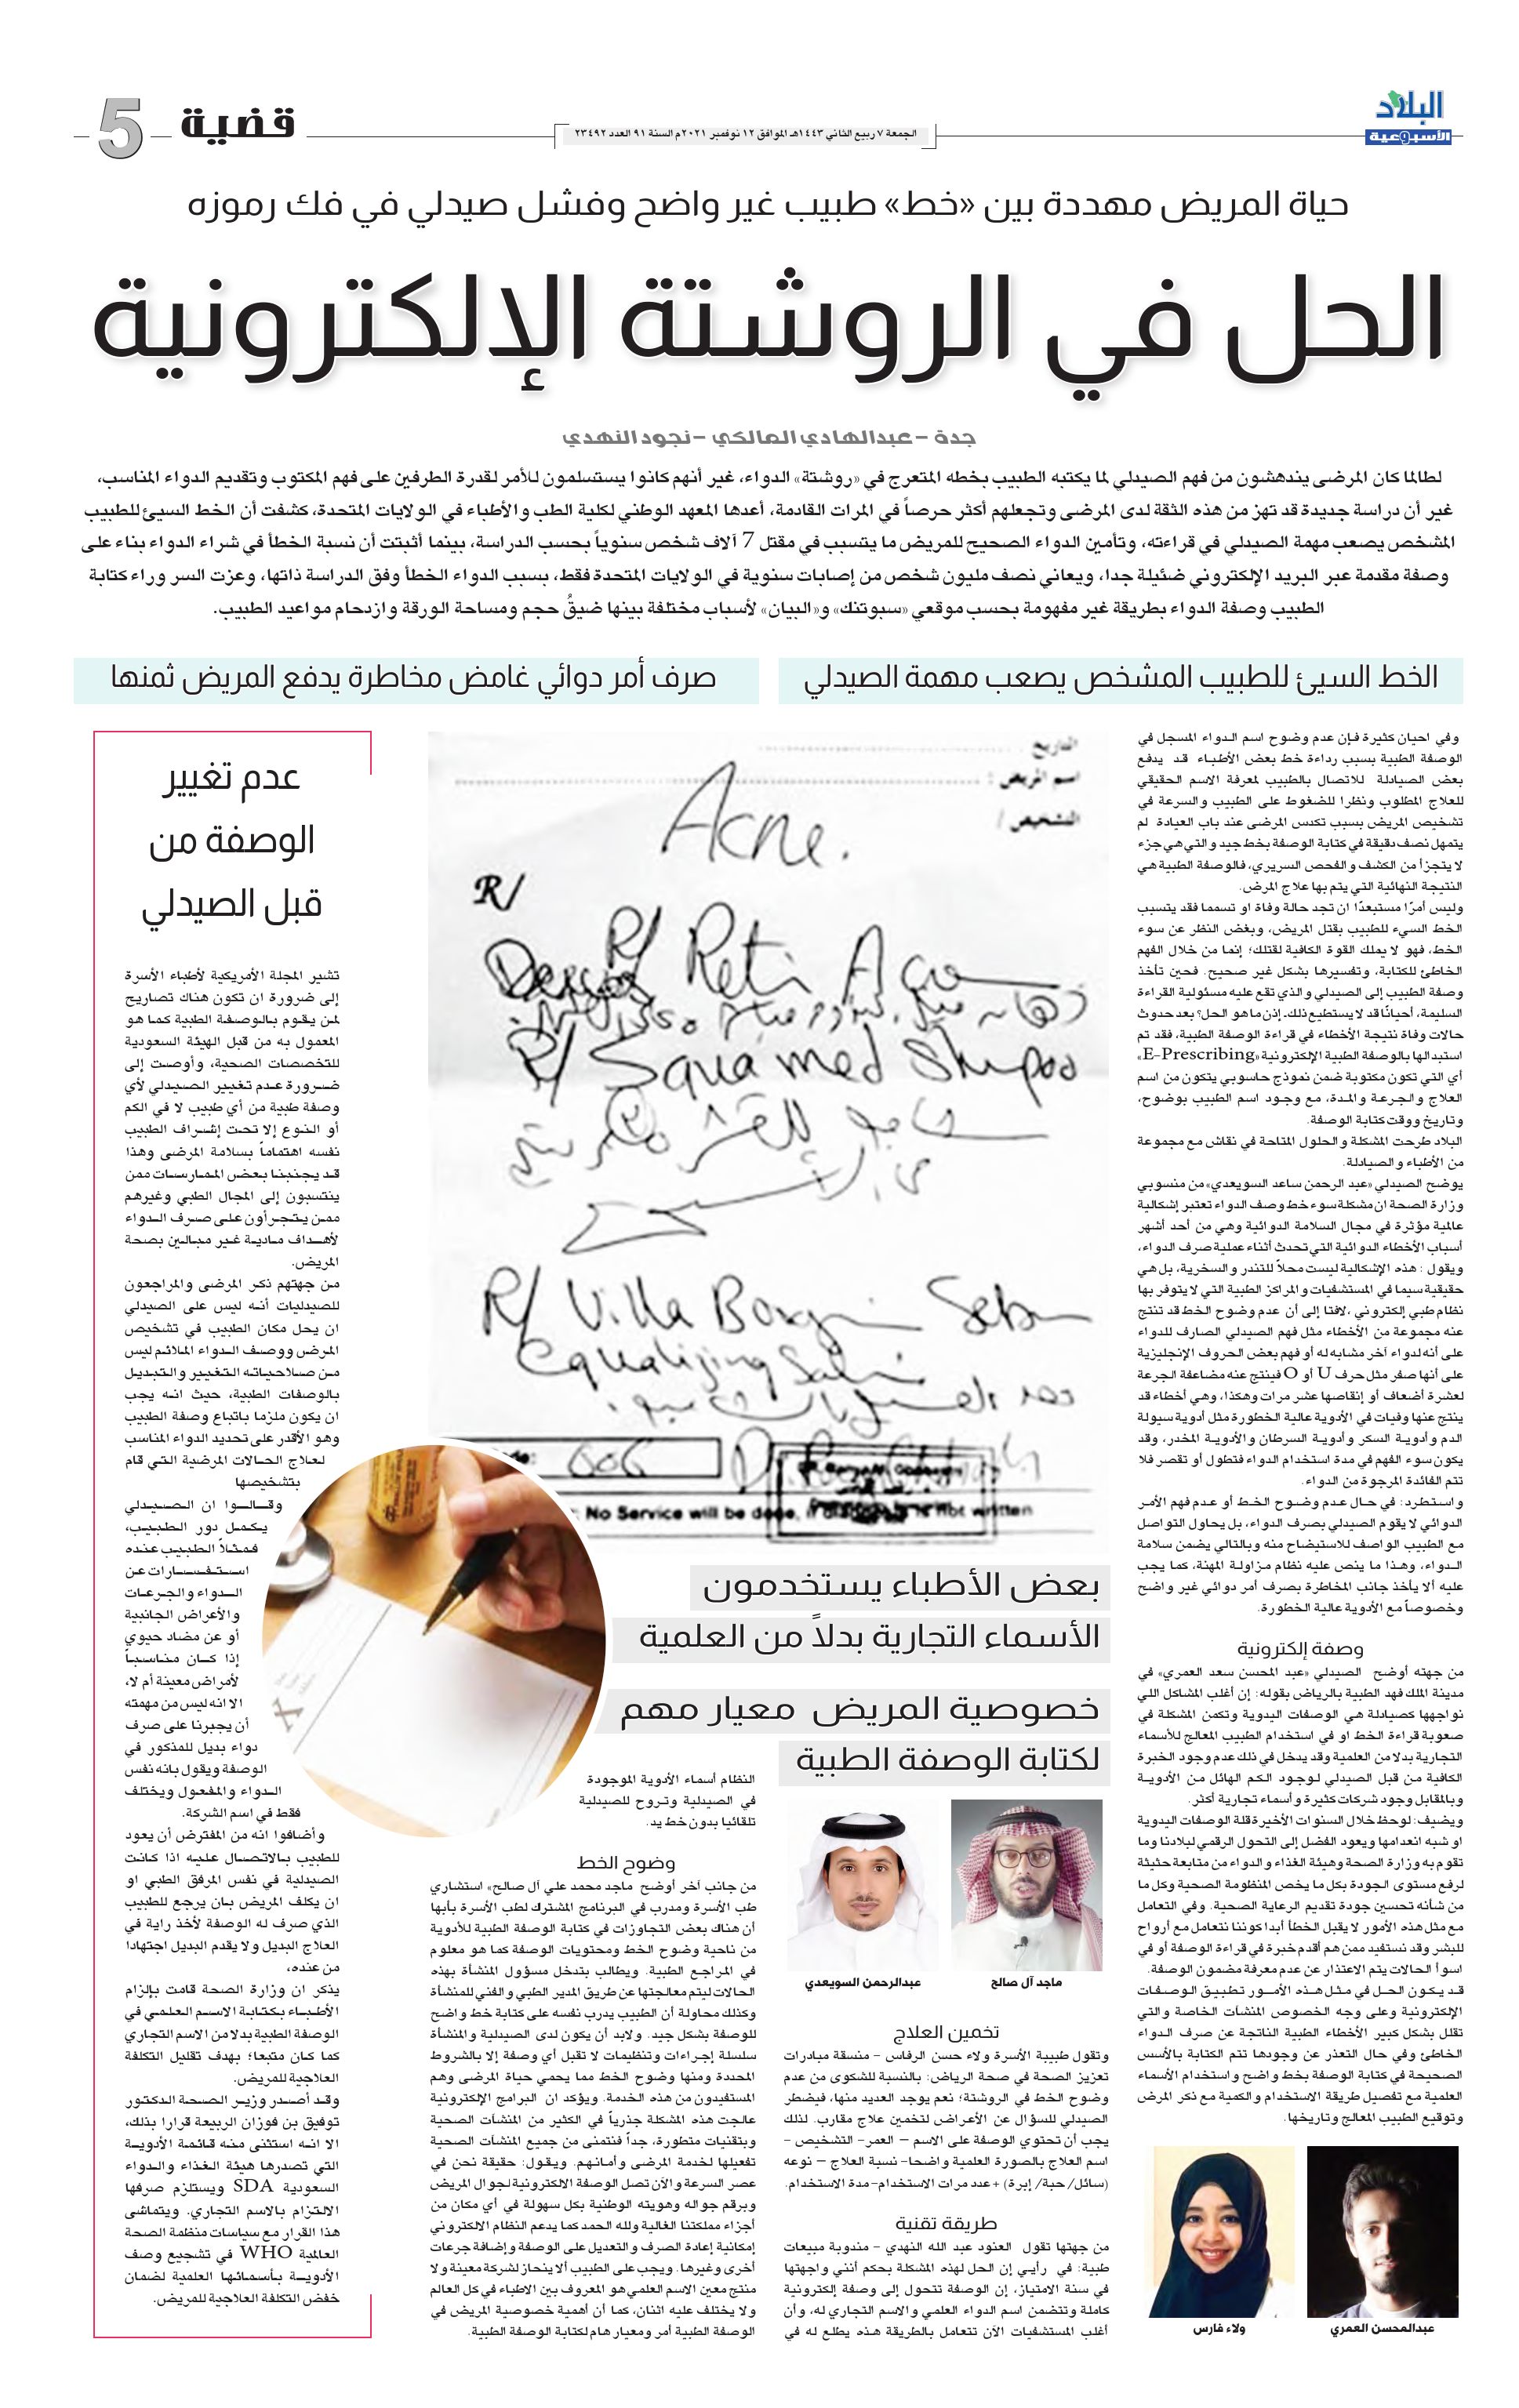 البلاد
الأسبوعية
الجمعة ٧ ربيع الثاني ١٤٤٣هـ الموافق ١٢ نوفمبر ٢٠٢١م السنة ٩١ العدد ٢٣٤٩٢
قضية
5
حياة المريض مهددة بين «خط» طبيب غير واضح وفشل صيدلي في فك رموزه
الحل في الروشتة الإلكترونية
جدة – عبدالهادي المالكي – نجود النهدي
لطالما كان المرضى يندهشون من فهم الصيدلي لما يكتبه الطبيب بخطه المتعرج في «روشتة» الدواء، غير أنهم كانوا يستسلمون للأمر لقدرة الطرفين على فهم المكتوب وتقديم الدواء المناسب،
غير أن دراسة جديدة قد تهز من هذه الثقة لدى المرضى وتجعلهم أكثر حرصاً في المرات القادمة، أعدها المعهد الوطني لكلية الطب والأطباء في الولايات المتحدة، كشفت أن الخط السيئ للطبيب
المشخص يصعب مهمة الصيدلي في قراءته، وتأمين الدواء الصحيح للمريض ما يتسبب في مقتل 7 آلاف شخص سنوياً بحسب الدراسة، بينما أثبتت أن نسبة الخطأ في شراء الدواء بناء على
وصفة مقدمة عبر البريد الإلكتروني ضئيلة جدا، ويعاني نصف مليون شخص من إصابات سنوية في الولايات المتحدة فقط، بسبب الدواء الخطأ وفق الدراسة ذاتها، وعزت السر وراء كتابة
الطبيب وصفة الدواء بطريقة غير مفهومة بحسب موقعي «سبوتنك» و«البيان» لأسباب مختلفة بينها ضيقُ حجم ومساحة الورقة وازدحام مواعيد الطبيب.
الخط السيئ للطبيب المشخص يصعب مهمة الصيدلي
صرف أمر دوائي غامض مخاطرة يدفع المريض ثمنها
وفي احيان كثيرة فإن عدم وضوح اسم الدواء المسجل في
الوصفة الطبية بسبب رداءة خط بعض الأطباء قد يدفع
بعض الصيادلة للاتصال بالطبيب لمعرفة الاسم الحقيقي
للعلاج المطلوب ونظرا للضغوط على الطبيب والسرعة في
تشخيص المريض بسبب تكدس المرضى عند باب العيادة لم
يتمهل نصف دقيقة في كتابة الوصفة بخط جيد والتي هي جزء
لا يتجزأ من الكشف والفحص السريري، فالوصفة الطبية هي
النتيجة النهائية التي يتم بها علاج المرض.
وليس أمرًا مستبعدًا ان تجد حالة وفاة او تسمما فقد يتسبب
الخط السيء للطبيب بقتل المريض، وبغض النظر عن سوء
الخط، فهو لا يملك القوة الكافية لقتلك؛ إنما من خلال الفهم
الخاطئ للكتابة، وتفسيرها بشكل غير صحيح. فحين تأخذ
وصفة الطبيب إلى الصيدلي والذي تقع عليه مسئولية القراءة
السليمة، أحيانًا قد لا يستطيع ذلك. إذن ما هو الحل؟ بعد حدوث
حالات وفاة نتيجة الأخطاء في قراءة الوصفة الطبية، فقد تم
استبدالها بالوصفة الطبية الإلكترونية «E-Prescribing»
أي التي تكون مكتوبة ضمن نموذج حاسوبي يتكون من اسم
العلاج والجرعة والمدة، مع وجود اسم الطبيب بوضوح،
وتاريخ ووقت كتابة الوصفة.
البلاد طرحت المشكلة والحلول المتاحة في نقاش مع مجموعة
من الأطباء والصيادلة.
يوضح الصيدلي «عبد الرحمن ساعد السويعدي» من منسوبي
وزارة الصحة ان مشكلة سوء خط وصف الدواء تعتبر إشكالية
عالمية مؤثرة في مجال السلامة الدوائية وهي من أحد أشهر
أسباب الأخطاء الدوائية التي تحدث أثناء عملية صرف الدواء،
ويقول : هذه الإشكالية ليست محلاً للتندر والسخرية، بل هي
حقيقية سيما في المستشفيات والمراكز الطبية التي لا يتوفر بها
نظام طبي إلكتروني ،لافتا إلى أن عدم وضوح الخط قد تنتج
عنه مجموعة من الأخطاء مثل فهم الصيدلي الصارف للدواء
على أنه لدواء آخر مشابه له أو فهم بعض الحروف الإنجليزية
على أنها صفر مثل حرف U أو O فينتج عنه مضاعفة الجرعة
لعشرة أضعاف أو إنقاصها عشر مرات وهكذا، وهي أخطاء قد
ينتج عنها وفيات في الأدوية عالية الخطورة مثل أدوية سيولة
الدم وأدوية السكر وأدوية السرطان والأدوية المخدر، وقد
يكون سوء الفهم في مدة استخدام الدواء فتطول أو تقصر فلا
تتم الفائدة المرجوة من الدواء.
واستطرد: في حال عدم وضوح الخط أو عدم فهم الأمر
الدوائي لا يقوم الصيدلي بصرف الدواء، بل يحاول التواصل
مع الطبيب الواصف للاستيضاح منه وبالتالي يضمن سلامة
الدواء، وهذا ما ينص عليه نظام مزاولة المهنة، كما يجب
عليه ألا يأخذ جانب المخاطرة بصرف أمر دوائي غير واضح
وخصوصاً مع الأدوية عالية الخطورة.
وصفة إلكترونية
من جهته أوضح الصيدلي «عبد المحسن سعد العمري» في
مدينة الملك فهد الطبية بالرياض بقوله: إن أغلب المشاكل اللي
نواجهها كصيادلة هي الوصفات اليدوية وتكمن المشكلة في
صعوبة قراءة الخط او في استخدام الطبيب المعالج للأسماء
التجارية بدلا من العلمية وقد يدخل في ذلك عدم وجود الخبرة
الكافية من قبل الصيدلي لوجود الكم الهائل من الأدوية
وبالمقابل وجود شركات كثيرة وأسماء تجارية أكثر.
ويضيف: لوحظ خلال السنوات الأخيرة قلة الوصفات اليدوية
او شبه انعدامها ويعود الفضل إلى التحول الرقمي لبلادنا وما
تقوم به وزارة الصحة وهيئة الغذاء والدواء من متابعة حثيثة
لرفع مستوى الجودة بكل ما يخص المنظومة الصحية وكل ما
من شأنه تحسين جودة تقديم الرعاية الصحية. وفي التعامل
مع مثل هذه الأمور لا يقبل الخطأ أبدا كوننا نتعامل مع أرواح
للبشر وقد نستفيد ممن هم أقدم خبرة في قراءة الوصفة أو في
اسوأ الحالات يتم الاعتذار عن عدم معرفة مضمون الوصفة.
قد يكون الحل في مثل هذه الأمور تطبيق الوصفات
الإلكترونية وعلى وجه الخصوص المنشآت الخاصة والتي
تقلل بشكل كبير الأخطاء الطبية الناتجة عن صرف الدواء
الخاطئ وفي حال التعذر عن وجودها تتم الكتابة بالأسس
الصحيحة في كتابة الوصفة بخط واضح واستخدام الأسماء
العلمية مع تفصيل طريقة الاستخدام والكمية مع ذكر المرض
وتوقيع الطبيب المعالج وتاريخها.
عبدالمحسن العمري
ولاء فارس
التاريخ
اسم المريض :
التشخيص /
Acne.
R/
R/ Reti Acne
R/ Squamed Shapoo
R/ Villa Borgini Sebo
Equalizing
606
No Service will be done, if diagnosis is not written
بعض الأطباء يستخدمون
الأسماء التجارية بدلاً من العلمية
خصوصية المريض معيار مهم
لكتابة الوصفة الطبية
ماجد آل صالح
عبدالرحمن السويعدي
تخمين العلاج
وتقول طبيبة الأسرة ولاء حسن الرفاس – منسقة مبادرات
تعزيز الصحة في صحة الرياض: بالنسبة للشكوى من عدم
وضوح الخط في الروشتة؛ نعم يوجد العديد منها، فيضطر
الصيدلي للسؤال عن الأعراض لتخمين علاج مقارب. لذلك
يجب أن تحتوي الوصفة على الاسم – العمر- التشخيص –
اسم العلاج بالصورة العلمية واضحا- نسبة العلاج – نوعه
(سائل/ حبة/ إبرة) +عدد مرات الاستخدام-مدة الاستخدام.
طريقة تقنية
من جهتها تقول العنود عبد الله النهدي – مندوبة مبيعات
طبية: في رأيي إن الحل لهذه المشكلة بحكم أنني واجهتها
في سنة الامتياز، إن الوصفة تتحول إلى وصفة إلكترونية
كاملة وتتضمن اسم الدواء العلمي والاسم التجاري له، وأن
أغلب المستشفيات الآن تتعامل بالطريقة هذه يطلع له في
النظام أسماء الأدوية الموجودة
في الصيدلية وتروح للصيدلية
تلقائيا بدون خط يد.
وضوح الخط
من جانب آخر أوضح ماجد محمد علي آل صالح» استشاري
طب الأسرة ومدرب في البرنامج المشترك لطب الأسرة بأبها
أن هناك بعض التجاوزات في كتابة الوصفة الطبية للأدوية
من ناحية وضوح الخط ومحتويات الوصفة كما هو معلوم
في المراجع الطبية. ويطالب بتدخل مسؤول المنشأة بهذه
الحالات ليتم معالجتها عن طريق المدير الطبي والفني للمنشأة
وكذلك محاولة أن الطبيب يدرب نفسه على كتابة خط واضح
للوصفة بشكل جيد. ولابد أن يكون لدى الصيدلية والمنشأة
سلسلة إجراءات وتنظيمات لا تقبل أي وصفة إلا بالشروط
المحددة ومنها وضوح الخط مما يحمي حياة المرضى وهم
المستفيدون من هذه الخدمة. ويؤكد ان البرامج الإلكترونية
عالجت هذه المشكلة جذرياً في الكثير من المنشآت الصحية
وبتقنيات متطورة، جداً فنتمنى من جميع المنشآت الصحية
تفعيلها لخدمة المرضى وأمانهم. ويقول: حقيقة نحن في
عصر السرعة والآن تصل الوصفة الالكترونية لجوال المريض
وبرقم جواله وهويته الوطنية بكل سهولة في أي مكان من
أجزاء مملكتنا الغالية ولله الحمد كما يدعم النظام الالكتروني
إمكانية إعادة الصرف والتعديل على الوصفة وإضافة جرعات
أخرى وغيرها. ويجب على الطبيب ألا ينحاز لشركة معينة ولا
منتج معين الاسم العلمي هو المعروف بين الاطباء في كل العالم
ولا يختلف عليه اثنان، كما أن أهمية خصوصية المريض في
الوصفة الطبية أمر ومعيار هام لكتابة الوصفة الطبية.
عدم تغيير
الوصفة من
قبل الصيدلي
تشير المجلة الأمريكية لأطباء الأسرة
إلى ضرورة ان تكون هناك تصاريح
لمن يقوم بالوصفة الطبية كما هو
المعمول به من قبل الهيئة السعودية
للتخصصات الصحية، وأوصت إلى
ضرورة عدم تغيير الصيدلي لأي
وصفة طبية من أي طبيب لا في الكم
أو النوع إلا تحت إشراف الطبيب
نفسه اهتماماً بسلامة المرضى وهذا
قد يجنبنا بعض الممارسات ممن
ينتسبون إلى المجال الطبي وغيرهم
ممن يتجرأون على صرف الدواء
لأهداف مادية غير مبالين بصحة
المريض.
من جهتهم ذكر المرضى والمراجعون
للصيدليات أنه ليس على الصيدلي
ان يحل مكان الطبيب في تشخيص
المرض ووصف الدواء الملائم ليس
من صلاحياته التغيير والتبديل
بالوصفات الطبية، حيث انه يجب
ان يكون ملزما باتباع وصفة الطبيب
وهو الأقدر على تحديد الدواء المناسب
لعلاج الحالات المرضية التي قام
بتشخيصها
وقالوا ان الصيدلي
يكمل دور الطبيب،
فمثلاً الطبيب عنده
استفسارات عن
الدواء والجرعات
والأعراض الجانبية
أو عن مضاد حيوي
إذا كان مناسباً
لأمراض معينة أم لا،
الا انه ليس من مهمته
أن يجبرنا على صرف
دواء بديل للمذكور في
الوصفة ويقول بانه نفس
الدواء والمفعول ويختلف
فقط في اسم الشركة.
وأضافوا انه من المفترض أن يعود
للطبيب بالاتصال عليه اذا كانت
الصيدلية في نفس المرفق الطبي او
ان يكلف المريض بان يرجع للطبيب
الذي صرف له الوصفة لأخذ راية في
العلاج البديل ولا يقدم البديل اجتهادا
من عنده،
يذكر ان وزارة الصحة قامت بإلزام
الأطباء بكتابة الاسم العلمي في
الوصفة الطبية بدلا من الاسم التجاري
كما كان متبعا؛ بهدف تقليل التكلفة
العلاجية للمريض.
وقد أصدر وزير الصحة الدكتور
توفيق بن فوزان الربيعة قرارا بذلك،
الا انه استثنى منه قائمة الأدوية
التي تصدرها هيئة الغذاء والدواء
السعودية SDA ويستلزم صرفها
الالتزام بالاسم التجاري. ويتماشى
هذا القرار مع سياسات منظمة الصحة
العالمية WHO في تشجيع وصف
الأدوية بأسمائها العلمية لضمان
خفض التكلفة العلاجية للمريض.